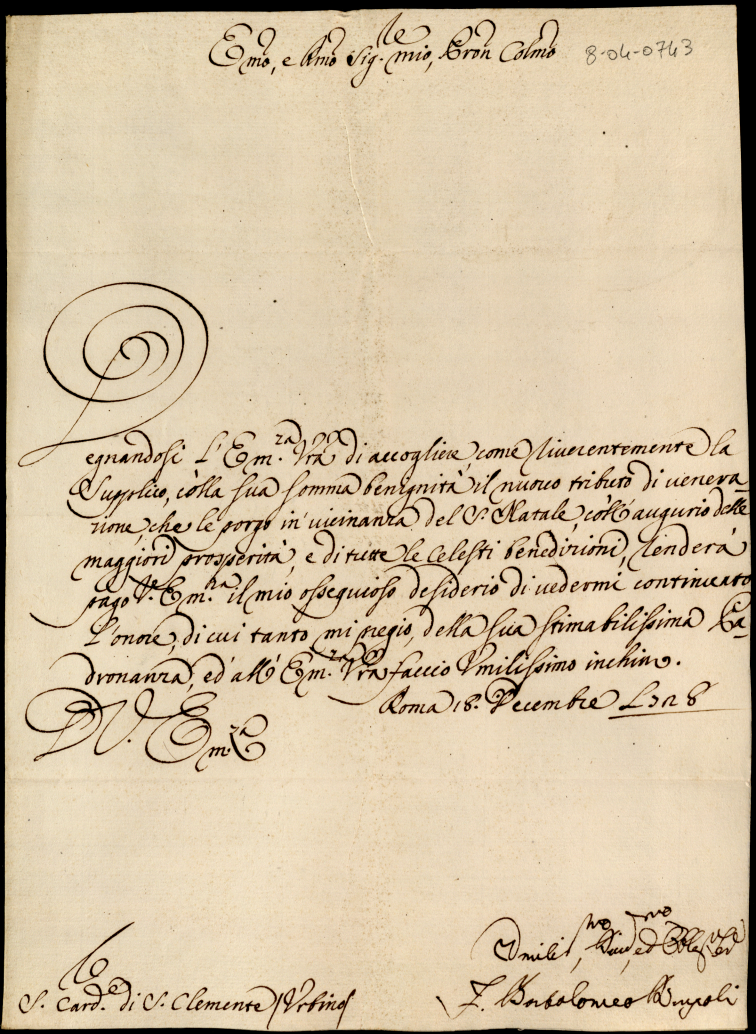 Emo, e Rmo Sig.re mio, Pron Colmo
8-04-0743
Degnandosi l'Em.za Vra di accogliere, come riverentemente la
Supplico, colla sua somma benignità il nuovo tributo di venera-
zione, che le porgo in vicinanza del S. Natale, coll'augurio delle
maggiori prosperità, e di tutte le celesti benedizioni, renderà
pago V.ra Em.za il mio ossequioso desiderio di vedermi continuato
l'onore, di cui tanto mi pregio, della sua stimabilissima Pa-
dronanza, ed all'Em.za Vra faccio Umilissimo inchino.
Roma 18. Decembre 1728
D V. Em.za
Umiliss.mo, ed
S. Card.le di S. Clemente / Urbino /
F. Bartolomeo